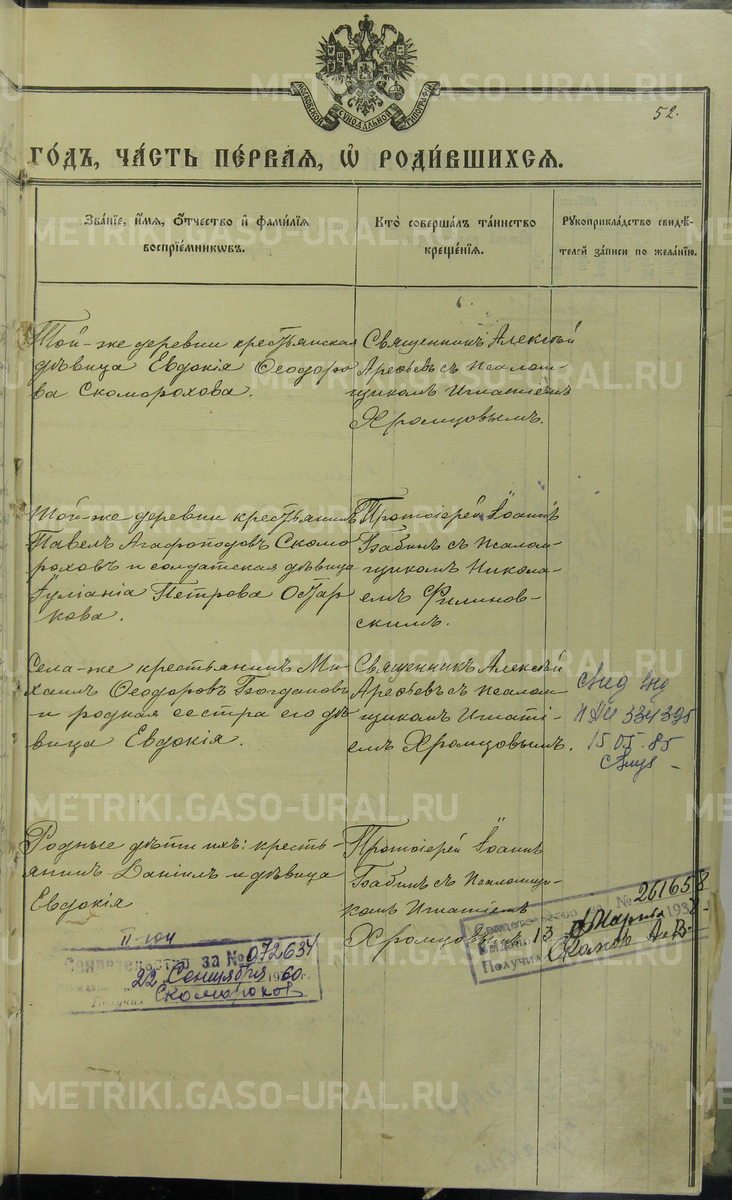 METRIKI.GASO-URAL.RU
МОСКОВСКОЙ СѴНОДАЛЬНОЙ ТИПОГРАФІИ
52.
ГОДЪ, ЧАСТЬ ПЕРВАЯ, Ѡ РОДИВШИХСЯ.
Званіе, имя, отчество и фамилія
воспріемниковъ.
Кто совершалъ таинство
крещенія.
Рукоприкладство свидѣ-
телей записи по желанію.
Той-же деревни крестьянская
дѣвица Евдокія Ѳеодоро
ва Скоморохова.
Священникъ Алексѣй
Арефьевъ съ псалом-
щикомъ Игнатіемъ
Хромцовымъ.
Той-же деревни крестьянинъ
Павелъ Агафоподовъ Скомо
роховъ и солдатская дѣвица
Іуліанія Петрова
кова.
Протоіерей Іоаннъ
Бабинъ съ псалом-
щикомъ Никола-
емъ Филинов-
скимъ.
Села-же крестьянинъ Ми-
хаилъ Ѳеодоровъ Богдановъ
и родная сестра его дѣ
вица Евдокія.
Священникъ Алексѣй
Арефьевъ съ псалом-
щикомъ Игнаті-
емъ Хромцовымъ.
334395
15 05. 85
Родные дѣти ихъ: кресть-
янинъ Даніилъ и дѣвица
Евдокія
Протоіерей Іоаннъ
Бабинъ съ псаломщи-
комъ Игнатіемъ
Хромцовымъ
II-ЮЧ
Свидетельство за № 072634
22 Сентября 1960 г.
Получил Скоморохов
Свидетельство за № 261658
13 Марта 198
Получил